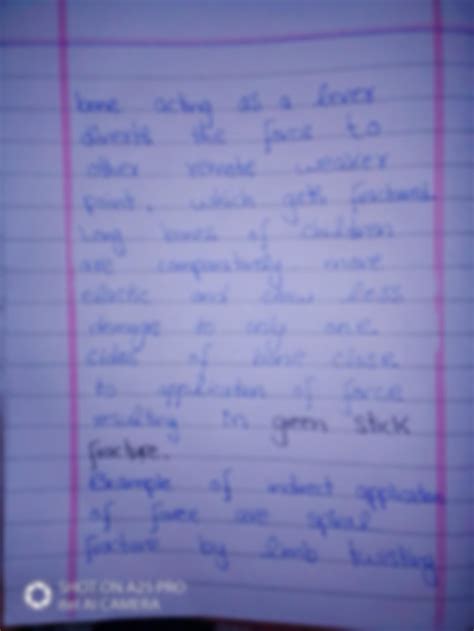 bone acting as a lever
diverts the force to
other remote weaker
point, which gets fractured.
Long bones of children
are comparatively more
elastic and show less
damage to only one
sides of bone close
to application of force
resulting in green stick
fracture.
Example of indirect application
of force are spiral
fracture by limb twisting
SHOT ON A25 PRO
AI CAMERA